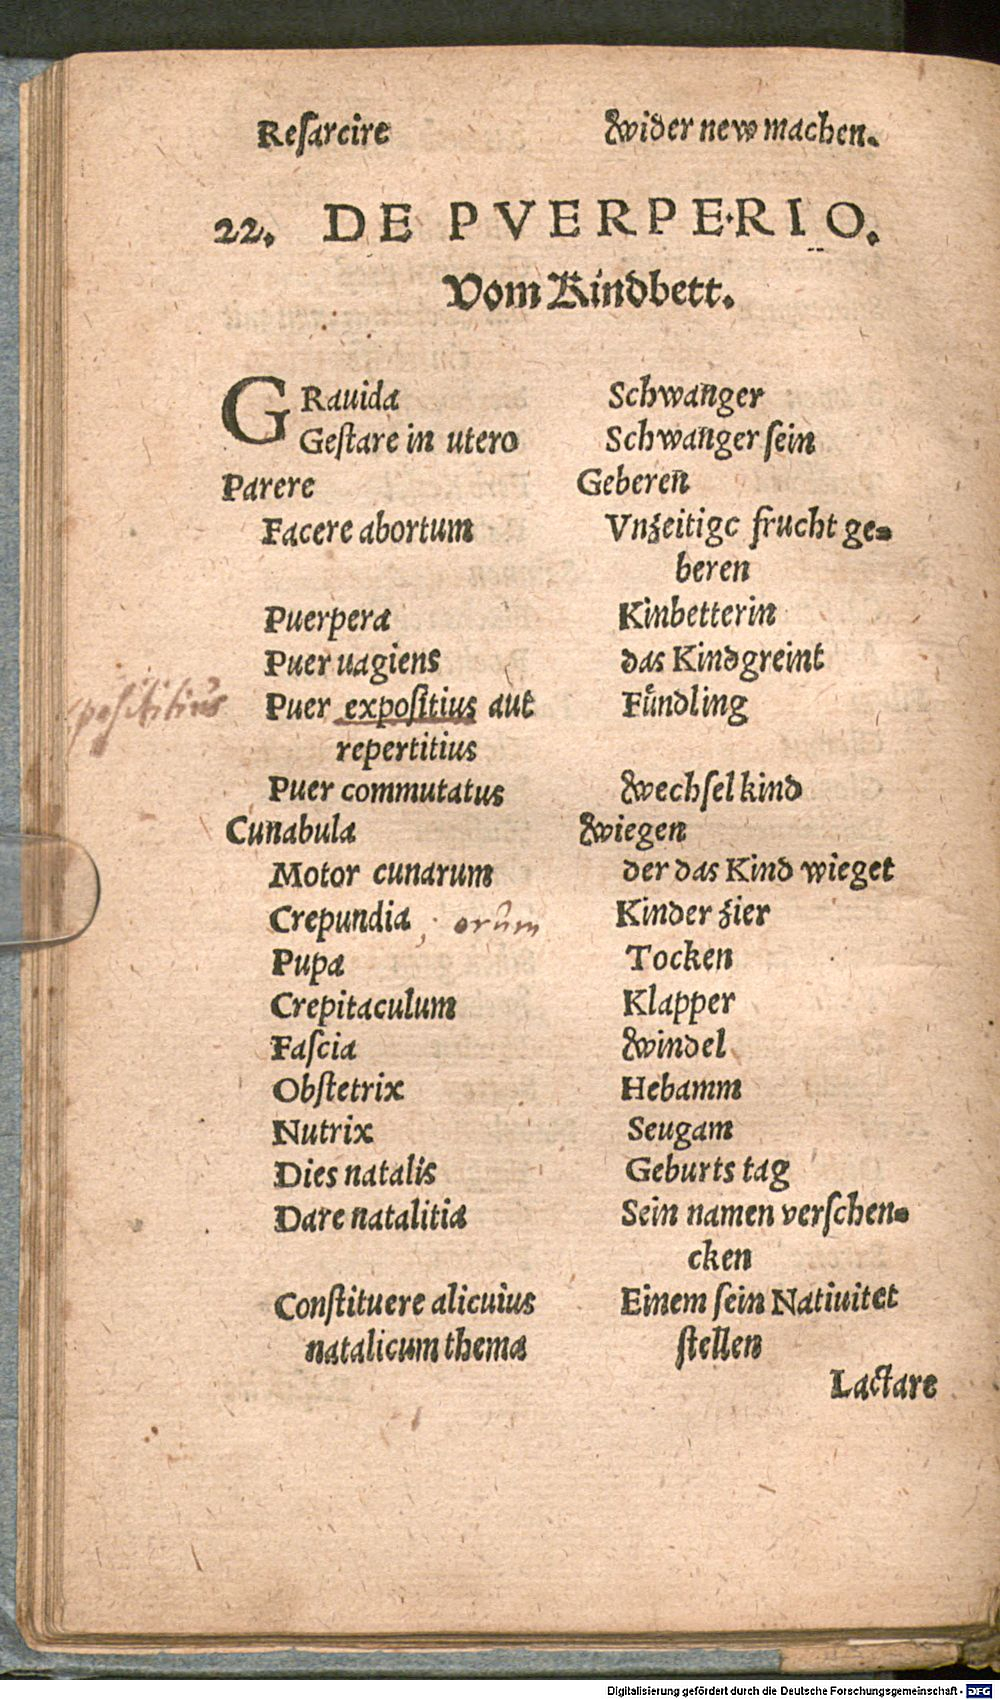 Reſarcire Wider new machen.
22. DE PVERPERIO.
Vom Kindbett.
GRauida Schwanger
Geſtare in utero Schwanger ſein
Parere Geberen
Facere abortum Vnzeitige frucht ge-
beren
Puerpera Kinbetterin
Puer uagiens das Kindgreint
poſititius Puer expoſitius aut Fuͤndling
repertitius
Puer commutatus Wechſel kind
Cunabula Wiegen
Motor cunarum der das Kind wieget
Crepundia, orum Kinder zier
Pupa Tocken
Crepitaculum Klapper
Faſcia Windel
Obſtetrix Hebamm
Nutrix Seugam
Dies natalis Geburts tag
Dare natalitia Sein namen verſchen-
cken
Conſtituere alicuius Einem ſein Natiuitet
natalicum thema ſtellen
Lactare
Digitalisierung gefördert durch die Deutsche Forschungsgemeinschaft - DFG